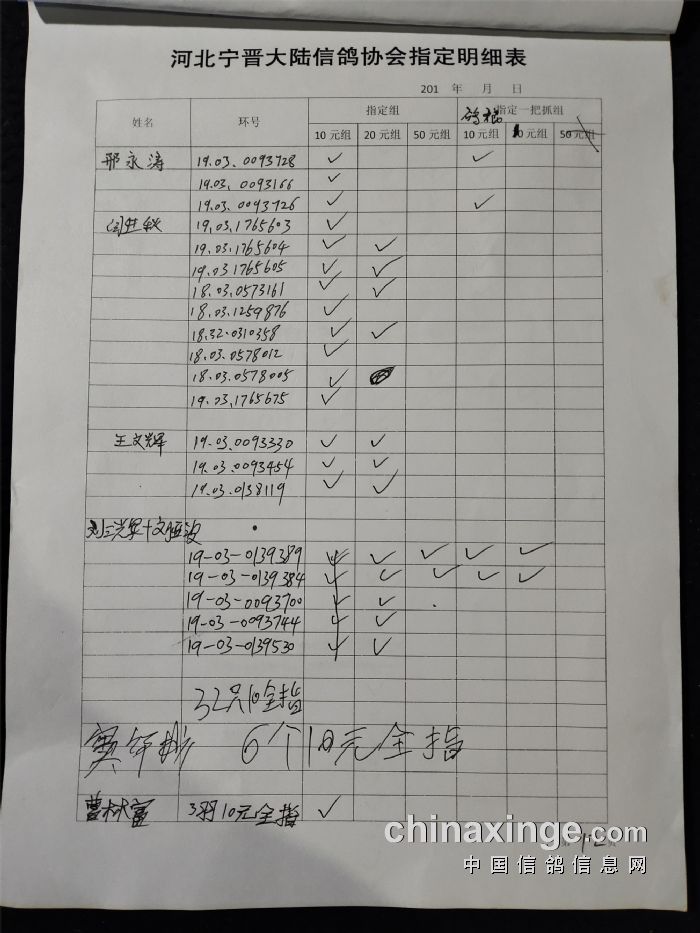 河北宁晋大陆信鸽协会指定明细表
201 年 月 日
姓名 环号 指定组 鸽棍 指定一把抓组
10 元组 20 元组 50 元组 10 元组 10 元组 50 元组
邢永涛 19.03.0093728 ✓ ✓
19.03.0093166 ✓
19.03.0093726 ✓ ✓
19.03.1765603 ✓
19.03.1765604 ✓ ✓
19.03.1765605 ✓ ✓
18.03.0573161 ✓ ✓
18.03.1259876 ✓
18.32.0310358 ✓ ✓
18.03.0578012 ✓
18.03.0578005 ✓
19.03.1765675 ✓
王文辉 19.03.0093330 ✓ ✓
19.03.0093454 ✓ ✓
19.03.0138119 ✓ ✓
19-03-0139389 ✓ ✓ ✓ ✓ ✓
19-03-0139384 ✓ ✓ ✓ ✓ ✓
19-03-0093700 ✓ ✓
19-03-0093744 ✓ ✓
19-03-0139530 ✓ ✓
32只10全指
6个10元全指
曹林富 3羽10元全指 ✓
chinaxinge.com
中国信鸽信息网